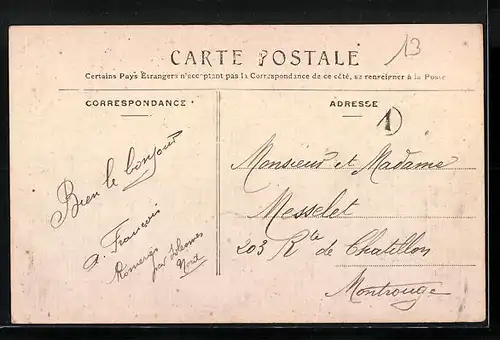 CARTE POSTALE
13
Certains Pays Étrangers n'acceptant pas la Correspondance de ce côté, se renseigner à la Poste
CORRESPONDANCE
Bien le bonjour
A. François
Romeries
par Solesmes
Nord
ADRESSE
1
Monsieur et Madame
Messelet
203 Rte de Chatillon
Montrouge